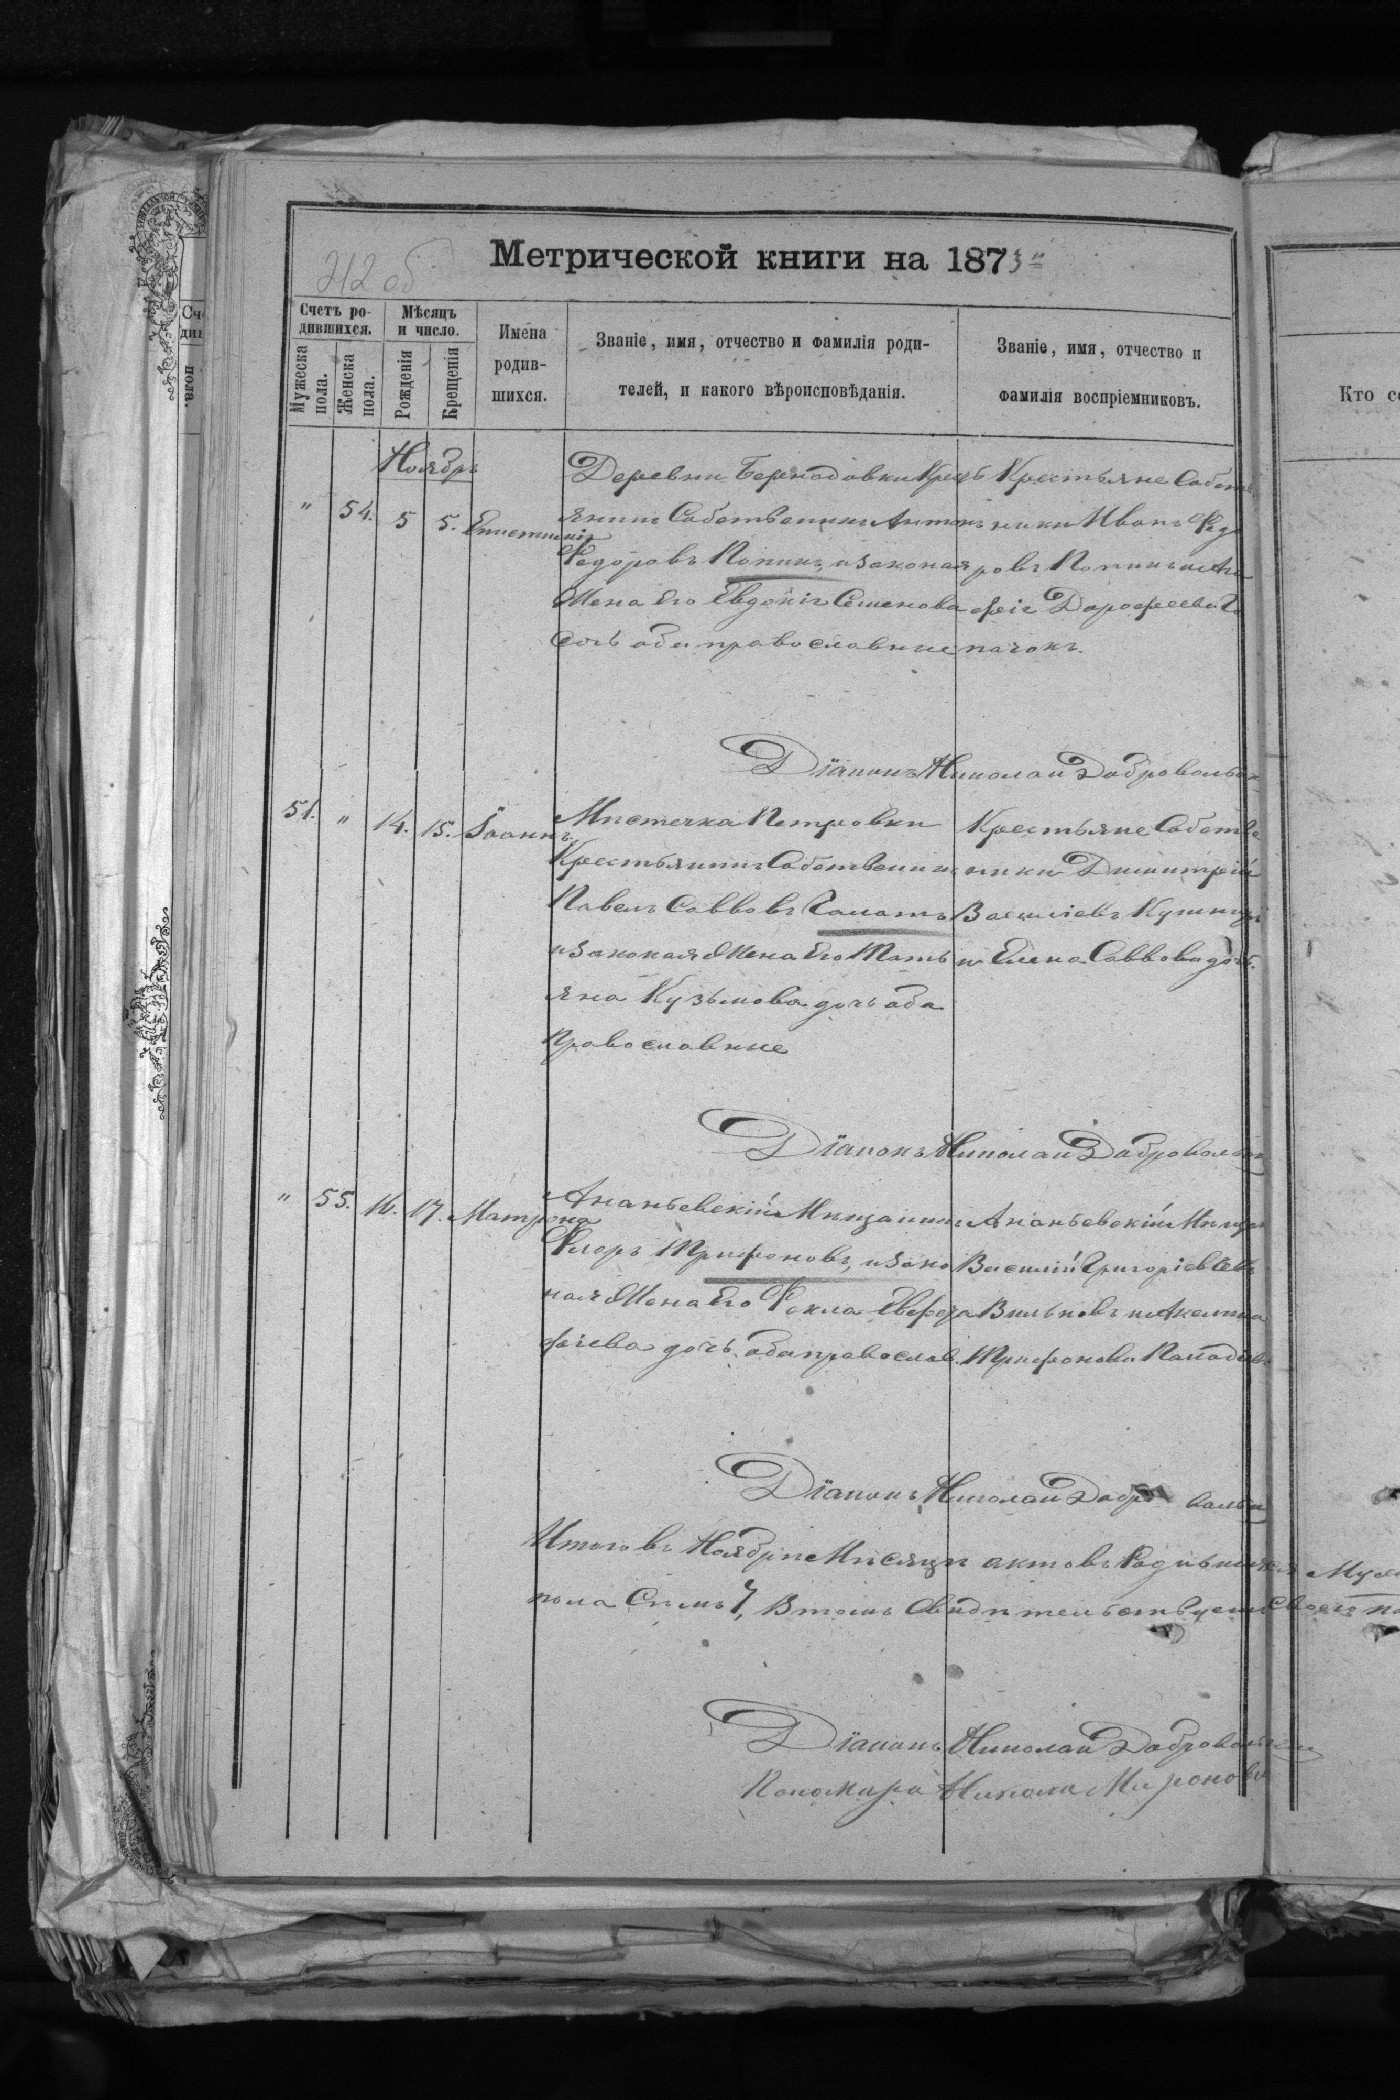 212 об
Метрической книги на 1873"
Счетъ ро-
дившихся.
Мужеска
пола.
Женска
пола.
Мѣсяцъ
и число.
Рожденія
Крещенія
Имена
родив-
шихся.
Званіе, имя, отчество и фамилія роди-
телей, и какого вѣроисповѣданія.
Званіе, имя, отчество и
фамилія воспріемниковъ.
Кто со
Ноябрь
" 54. 5 5. Епистимія
Деревни Крест
янинъ Собственникъ Антонъ
Федоровъ Попикъ, и законая
Жена Его Евдокія Семенова
дочь оба православные
Крестьяне Собстве
ники Иванъ Федо
ровъ Попикъ и Ага
фія Дорофеева
Діаконъ Николай Добровольск
51. " 14. 15. Іоаннъ.
Мѣстечка Петровки
Крестьянинъ Собственикъ
Павелъ Саввовъ Галатъ
и законая Жена Его Тать
яна Кузьмова дочь оба
Православные
Крестьяне Собстве
ники Дмитрій
Василіевъ
и Елена Саввова дочь.
Діаконъ Николай Добровольск
" 55. 16. 17. Матрона
Ананьевскій Мѣщанинъ
Флоръ Трифоновъ, и зако
ная Жена Его Фекла
фіева дочь. оба православ.
Ананьевскій Мѣщан
Василій Григоріевъ
и Акелина
Трифонова
Діаконъ Николай Добровольск
Итого въ Ноябрѣ Мѣсяцѣ актовъ Родившихся Муже
пола Семь 7, Втомъ Свидѣтельствуемъ
Діаконъ Николай Добровольскій
Пономарь Никола Мироновъ